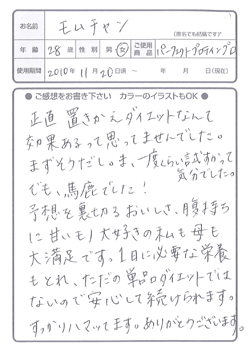 お名前 モムチャン
(匿名でも結構です)
年齢 28歳 性別 男・女 ご使用商品 パーフェクトプロテインプロ
使用期間 2010年11月20日頃〜 年 月 日(現在)
●ご感想をお書き下さい カラーのイラストもOK●
正直 置きかえダイエットなんて
効果あるって思ってませんでした。
まずそうだし。ま、一度くらい試すかって
気分でした。
でも、馬鹿でした!
予想を裏切るおいしさ、腹持ち
に甘いもノ大好きの私も母も
大満足です。1日に必要な栄養
もとれ、ただの単品ダイエットでは
ないので安心して続けられます。
すっかりハマッてます。ありがとうございます。